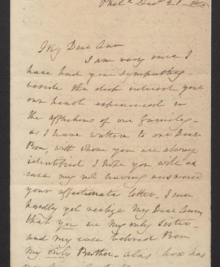 My Dear Ann
I am very sure I
have had your sympathy
beside the deep interest your
own heart experienced in
the afflictions of our family
as I have written to our Dear
Bro, with whom you are always
identified I hope you will ex
cuse my not having answered
your affectionate letter, I can
hardly yet realize my Dear Ann,
that you are my only Sister
and my ever beloved Bro
my only Brother. alas how has